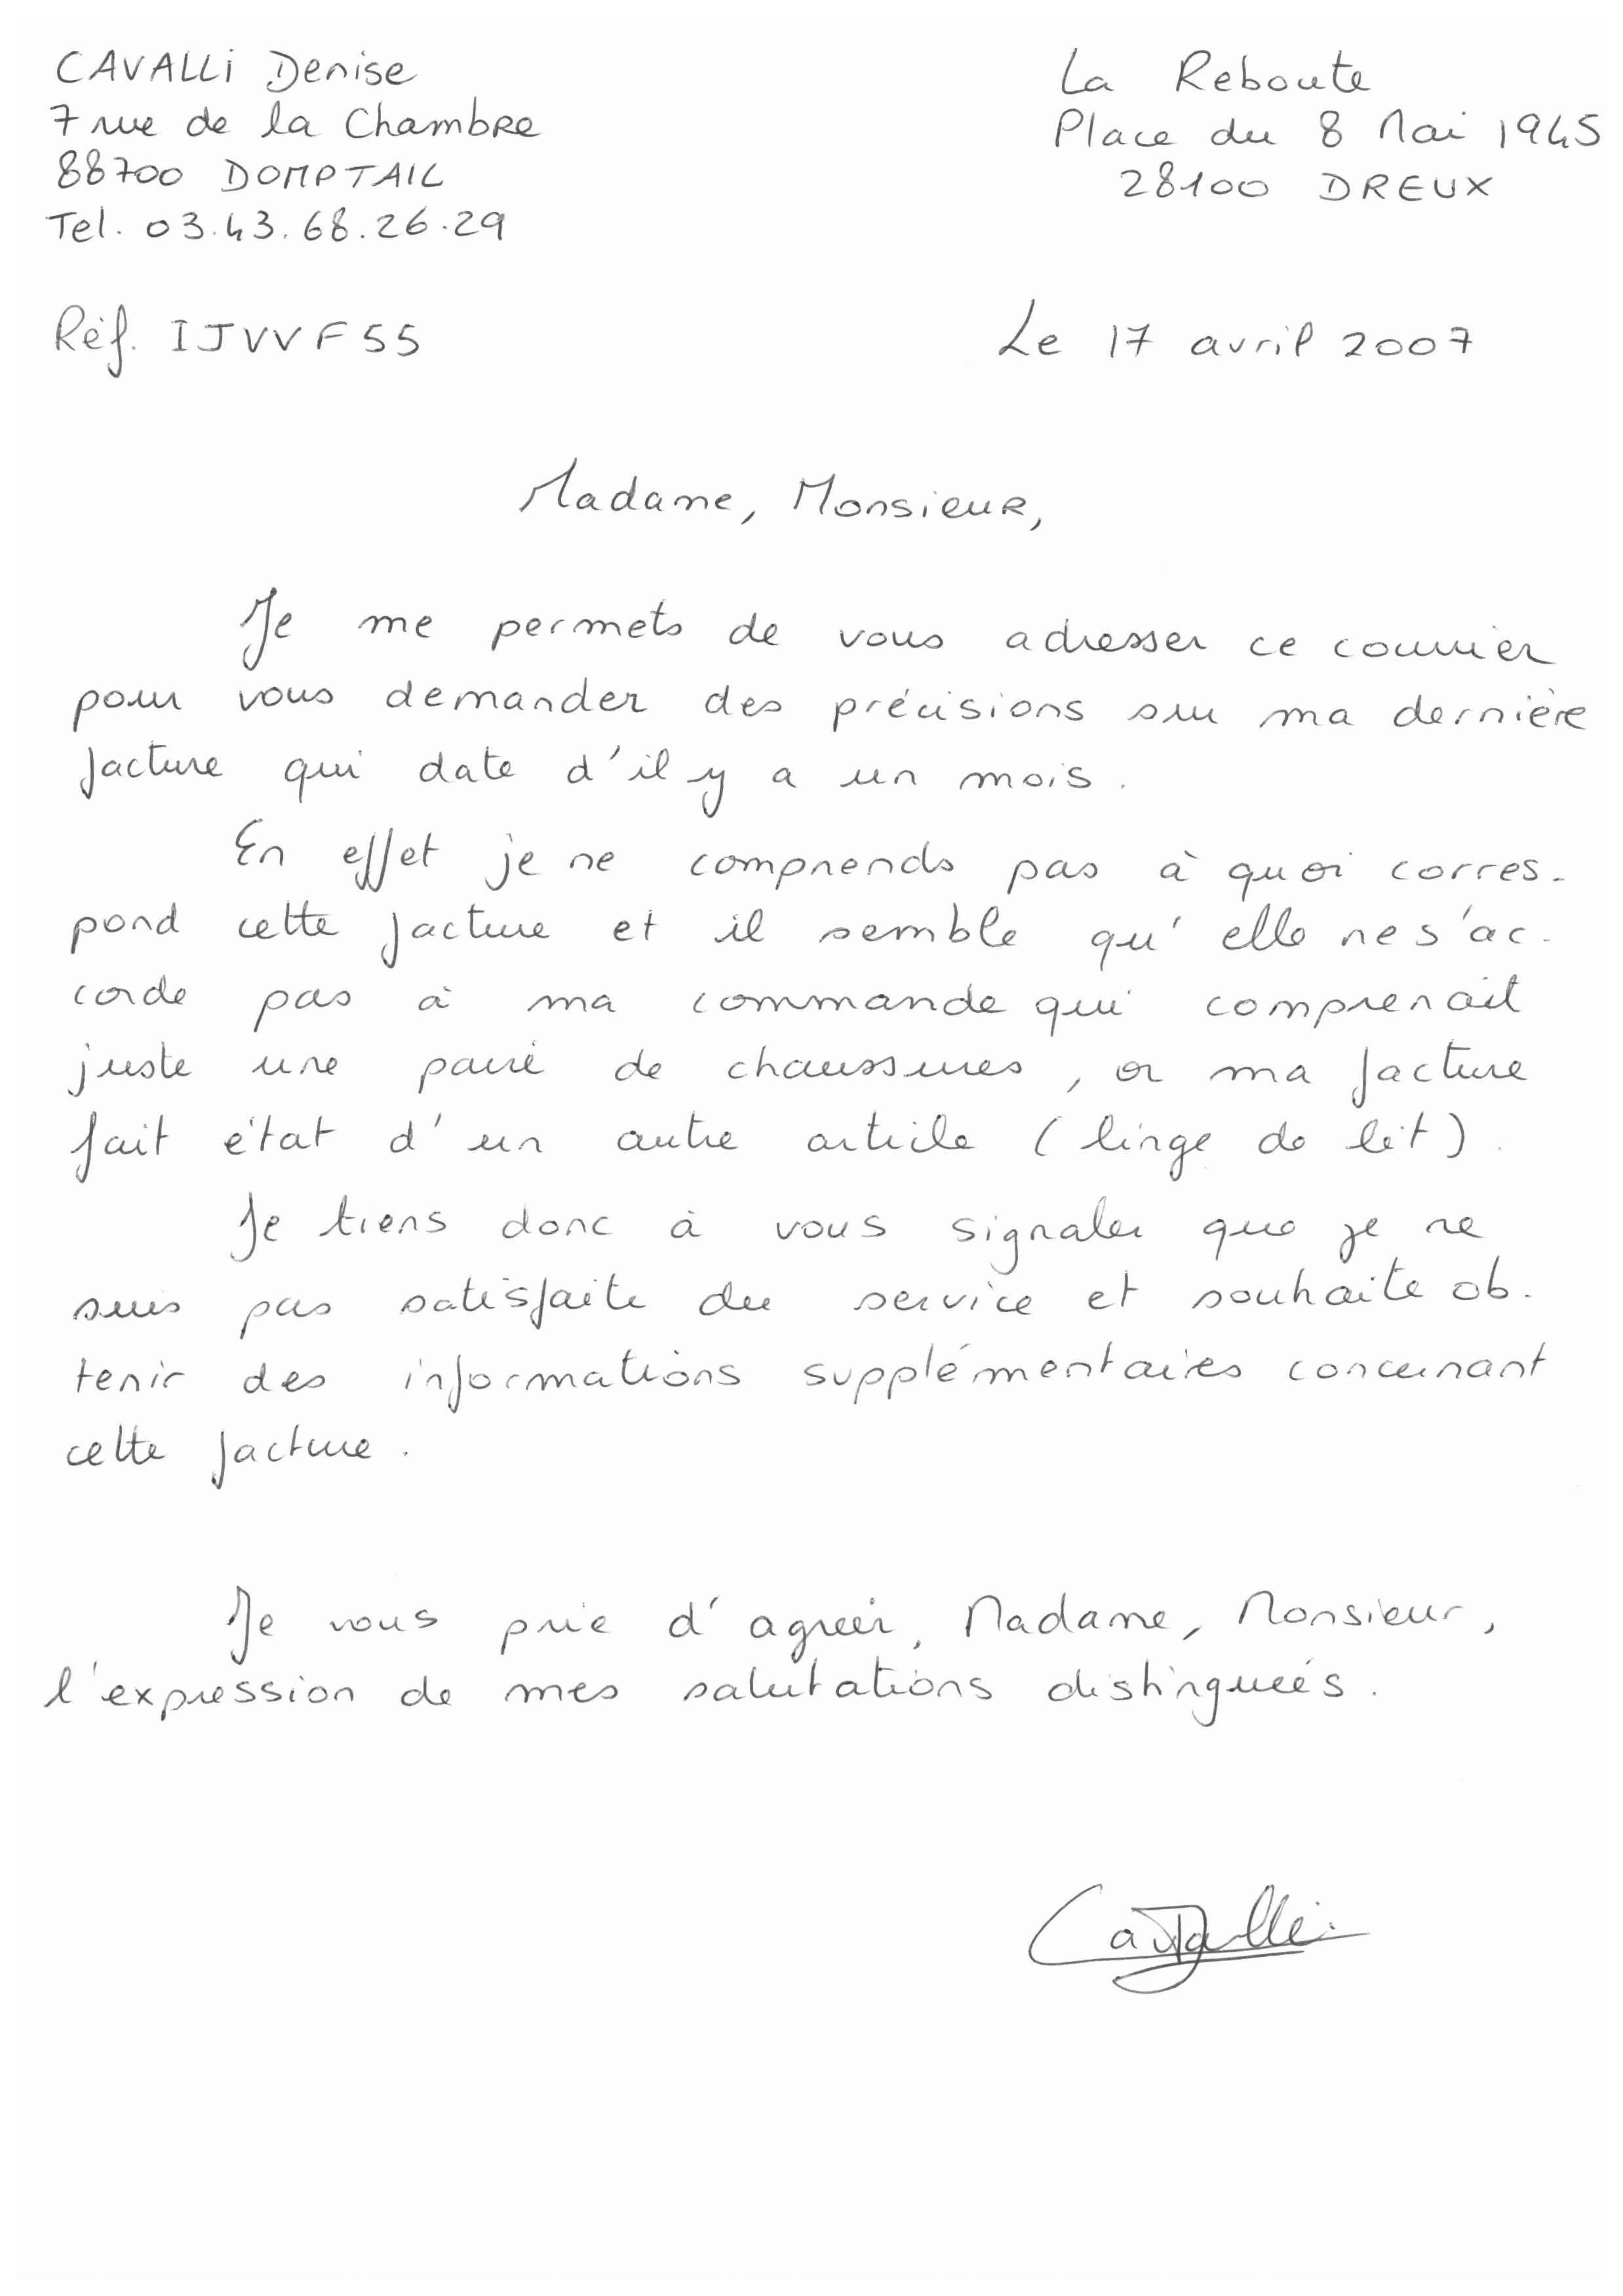 CAVALLi Denise
7 rue de la Chambre
88700 DOMPTAIL
Tel. 03.43.68.26.29
La Reboute
Place du 8 Mai 1945
28100 DREUX
Réf. IJVVF55
Le 17 avril 2007
Madame, Monsieur,
Je me permets de vous adresser ce courrier
pour vous demander des précisions sur ma dernière
facture qui date d'il y a un mois.
En effet je ne comprends pas à quoi corres-
pond cette facture et il semble qu'elle ne s'ac-
corde pas à ma commande qui comprenait
juste une paire de chaussures, or ma facture
fait état d'un autre article (linge de lit).
Je tiens donc à vous signaler que je ne
suis pas satisfaite du service et souhaite ob-
tenir des informations supplémentaires concernant
cette facture.
Je vous prie d'agréer, Madame, Monsieur,
l'expression de mes salutations distinguées.
Cavalli